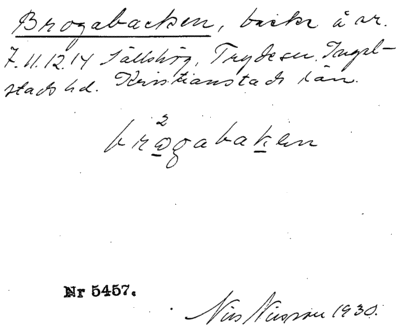 Brogabacken, backe å nr.
7.11.12.14 Sällshög, Tryde sn. Ingel-
stads hd. Kristianstads län.
2
brogabaken
Nr 5457.
Nils Nilsson 1930.